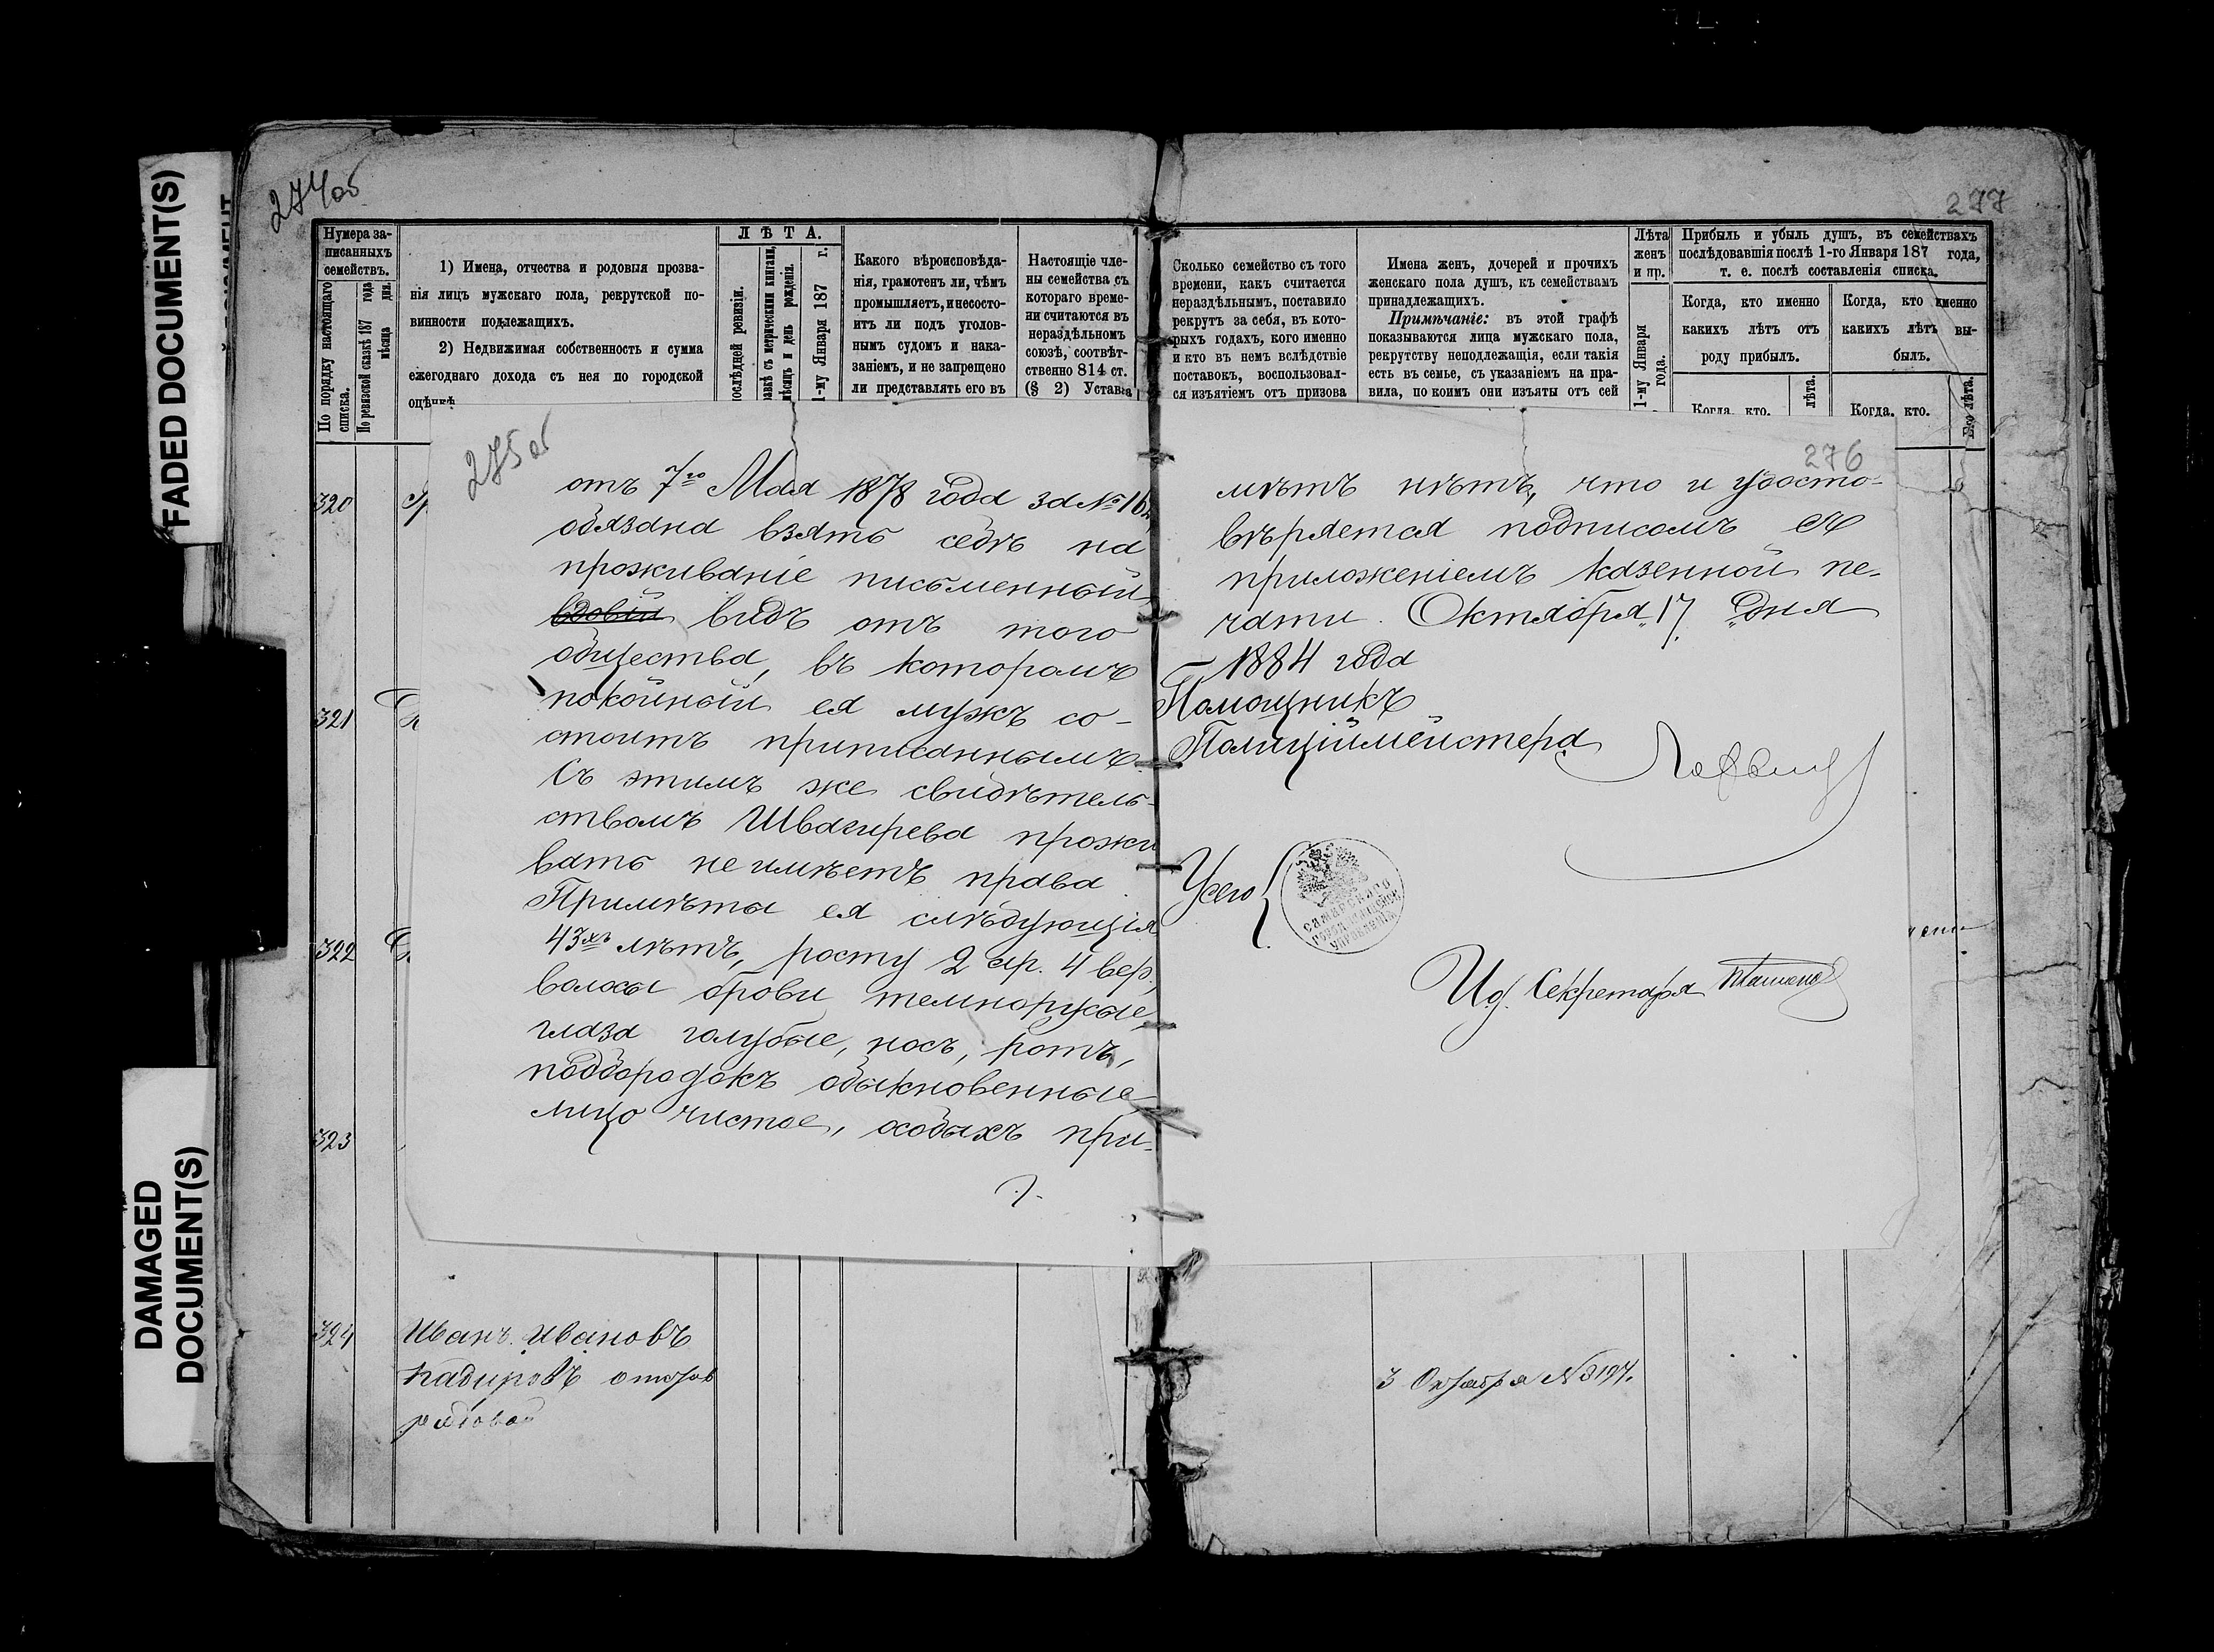 FADED DOCUMENT(S)
DAMAGED
DOCUMENT(S)
274 об
277
Нумера за-
писанныхъ
семействъ.
По порядку настоящаго
списка.
По ревизской сказкѣ 187 года
мѣсяца дня.
1) Имена, отчества и родовыя прозва-
нія лицъ мужскаго пола, рекрутской по-
винности подлежащихъ.
2) Недвижимая собственность и сумма
ежегоднаго дохода съ нея по городской
оцѣнкѣ
ЛѢТА.
послѣдней ревизіи.
мѣсяцъ и день рожденія.
1-му Января 187 г.
Какого вѣроисповѣда-
нія, грамотенъ ли, чѣмъ
промышляетъ, и несосто-
итъ ли подъ уголов-
нымъ судомъ и нака-
заніемъ, и не запрещено
ли представлять его въ
Настоящіе чле-
ны семейства съ
котораго време-
ни считаются въ
нераздѣльномъ
союзѣ, соотвѣт-
ственно 814 ст.
(§ 2) Устава
Сколько семейство съ того
времени, какъ считается
нераздѣльнымъ, поставило
рекрутъ за себя, въ кото-
рыхъ годахъ, кого именно
и кто въ немъ вслѣдствіе
поставокъ, воспользовал-
ся изъятіемъ отъ призова
Имена женъ, дочерей и прочихъ
женскаго пола душъ, къ семействамъ
принадлежащихъ.
Примѣчаніе: въ этой графѣ
показываются лица мужскаго пола,
рекрутству неподлежащія, если такія
есть въ семьѣ, съ указаніемъ на пра-
вила, по коимъ они изъяты отъ сей
Лѣта
женъ
и пр.
1-му Января
года.
Прибыль и убыль душъ, въ семействахъ
послѣдовавшія послѣ 1-го Января 187 года,
т. е. послѣ составленія списка.
Когда, кто именно
какихъ лѣтъ отъ
роду прибылъ.
Когда, кто именно
какихъ лѣтъ вы-
былъ.
Когда, кто.
лѣта.
Когда, кто.
Его лѣта.
320
321
322
323
275 об
отъ 7го Мая 1878 года за №
обязана взять себѣ на
проживаніе письменный
вдовій видъ отъ того
общества, въ которомъ
покойный ея мужъ со-
стоитъ приписаннымъ.
Съ этимъ же свидѣтель-
ствомъ Швагирева прожи
вать не имѣетъ права.
Примѣты ея слѣдующія
43хъ лѣтъ, росту 2 ар. 4 вер.,
волосы брови темнорусые,
глаза голубые, носъ, ротъ,
подбородокъ обыкновенные
лицо чистое, особыхъ при-
276
мѣтъ нѣтъ, что и удосто-
вѣряется подписомъ съ
приложеніемъ казенной пе-
чати. Октября "17" дня
1884 года
Помощникъ
Полиціймейстера
У сего
САМАРСКАГО
ГОРОД. ПОЛИЦЕЙСК.
УПРАВЛЕНІЯ
И.д. Секретаря
324
Иванъ Ивановъ
рядовой
3 Октября № 3194.